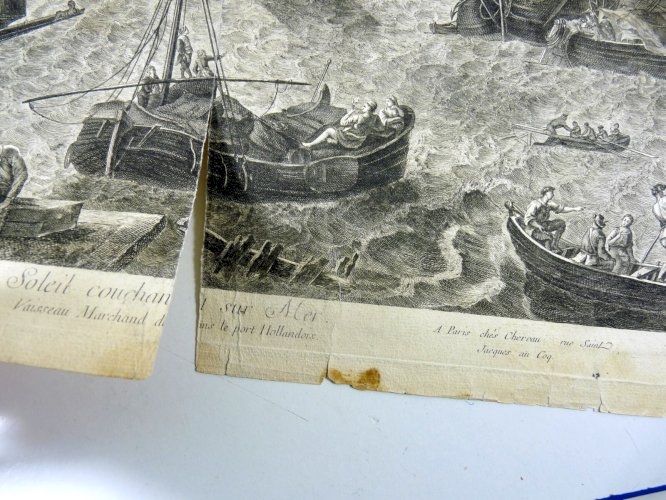 Soleil couchan t sur Mer.
Vaisseau Marchand d ns le port Hollandois.
A Paris chés Chereau rue Saint
Jacques au Coq